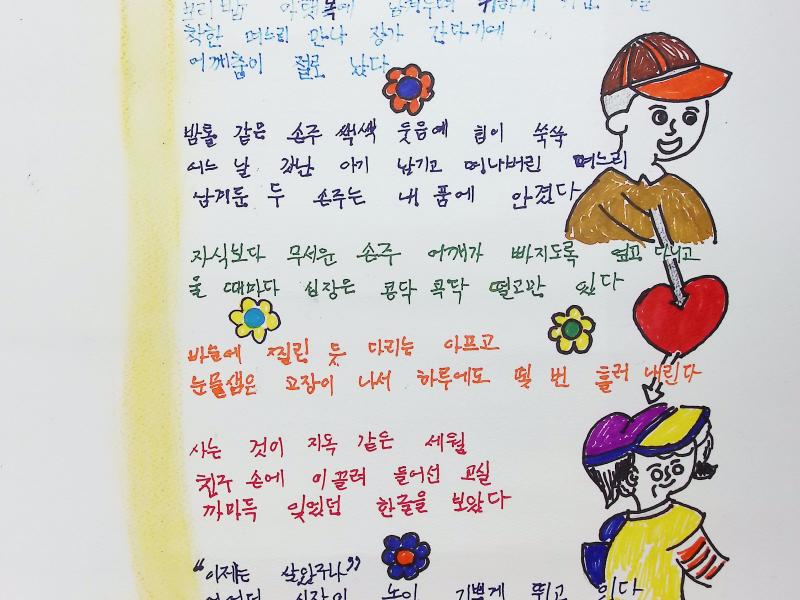 보리밥 아랫목에
착한 며느리 만나 장가 간다기에
어깨춤이 절로 났다
밤톨 같은 손주 쌕쌕 웃음에 힘이 쑥쑥
어느 날 갓난 아기 남기고 떠나버린 며느리
남겨둔 두 손주는 내 품에 안겼다
자식보다 무서운 손주 어깨가 빠지도록 업고 다니고
울 때마다 심장은 콩닥 콕닥 떨고만 있다
바늘에 찔린 듯 다리는 아프고
눈물샘은 고장이 나서 하루에도 몇 번 흘러 내린다
사는 것이 지독 같은 세월
친구 손에 이끌려 들어선 교실
까마득 잊었던 한글을 보았다
“이제는 살았구나”
심장이 높이 기쁘게 뛰고 있다